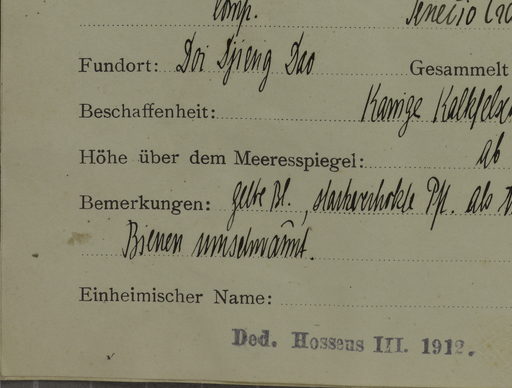 Comp. Senecio
Fundort: Doi Djieng Dao Gesammelt
Beschaffenheit: Karrige Kalkfelsen
Höhe über dem Meeresspiegel: ab
Bemerkungen: gelbe Bl., Pfl. als
Bienen umschwärmt.
Einheimischer Name:
Ded. Hosseus III. 1912.